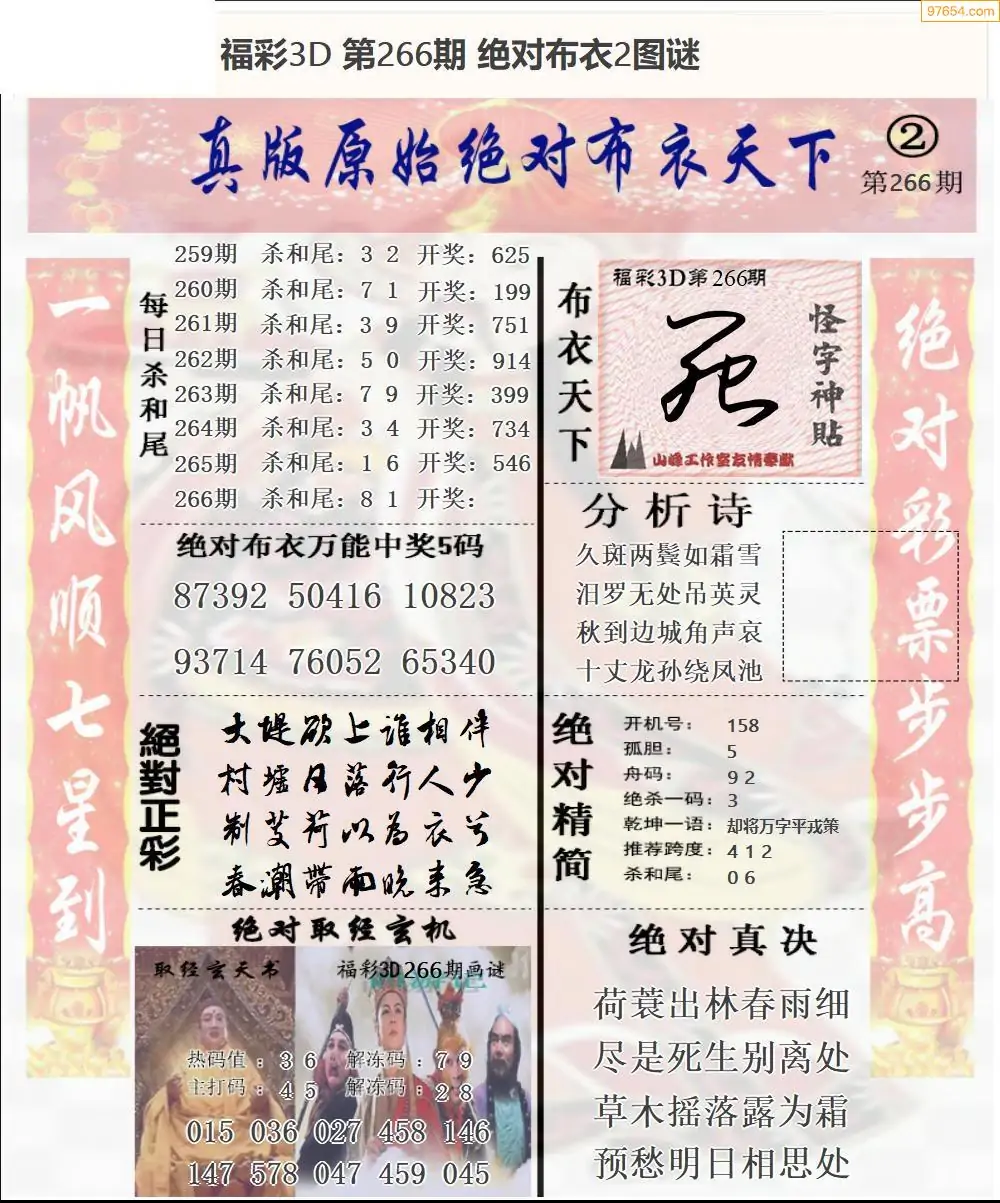 97654.com
福彩3D 第266期 绝对布衣2图谜
真版原始绝对布衣天下
②
第266期
一帆风顺七星到
每日杀和尾
259期 杀和尾：3 2 开奖：625
260期 杀和尾：7 1 开奖：199
261期 杀和尾：3 9 开奖：751
262期 杀和尾：5 0 开奖：914
263期 杀和尾：7 9 开奖：399
264期 杀和尾：3 4 开奖：734
265期 杀和尾：1 6 开奖：546
266期 杀和尾：8 1 开奖：
绝对布衣万能中奖5码
87392 50416 10823
93714 76052 65340
絕對正彩
大堤欲上谁相伴
村墟日落行人少
制芰荷以为衣兮
春潮带雨晚来急
绝对取经玄机
取经玄天书
福彩3D266期画谜
热码值：3 6 解冻码：7 9
主打码：4 5 解冻码：2 8
015 036 027 458 146
147 578 047 459 045
布衣天下
福彩3D第266期
怪字神貼
山峰工作室友情奉献
分析诗
久斑两鬓如霜雪
汨罗无处吊英灵
秋到边城角声哀
十丈龙孙绕凤池
绝对精简
开机号： 158
孤胆： 5
舟码： 9 2
绝杀一码：3
乾坤一语：却将万字平戎策
推荐跨度：4 1 2
杀和尾： 0 6
绝对真决
荷蓑出林春雨细
尽是死生别离处
草木摇落露为霜
预愁明日相思处
绝对彩票步步高